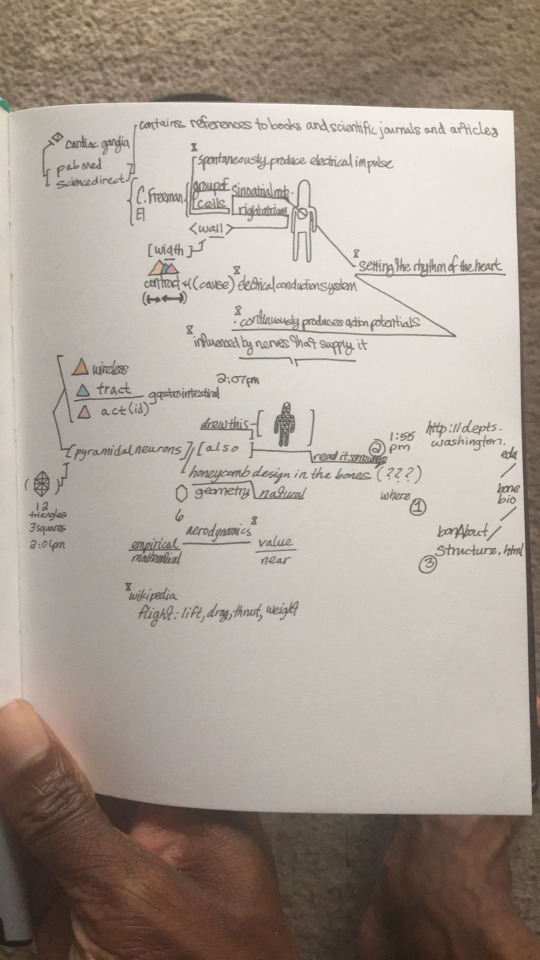 contains references to books and scientific journals and articles
cardiac ganglia
pubmed
sciencedirect
spontaneously produce electrical impulse
C. Freeman
group of cells
sinoatrial
right atrium
<wall>
[width]
setting the rhythm of the heart
contract (cause) electrical conduction system
continuously produces action potentials
influenced by nerves that supply it
2:07pm
wireless
tract
gastrointestinal
act(id)
drew this
1:55 pm
http://depts.
washington.
edu
/
bone
bio
/
bonAbout/
structure.html
[pyramidal neurons] / [also]
read it
2
honeycomb design in the bones (???)
where 1
geometry natural
12
triangles
3 squares
2:04pm
6
aerodynamics
empirical
value
near
3
wikipedia
flight: lift, drag, thrust, weight